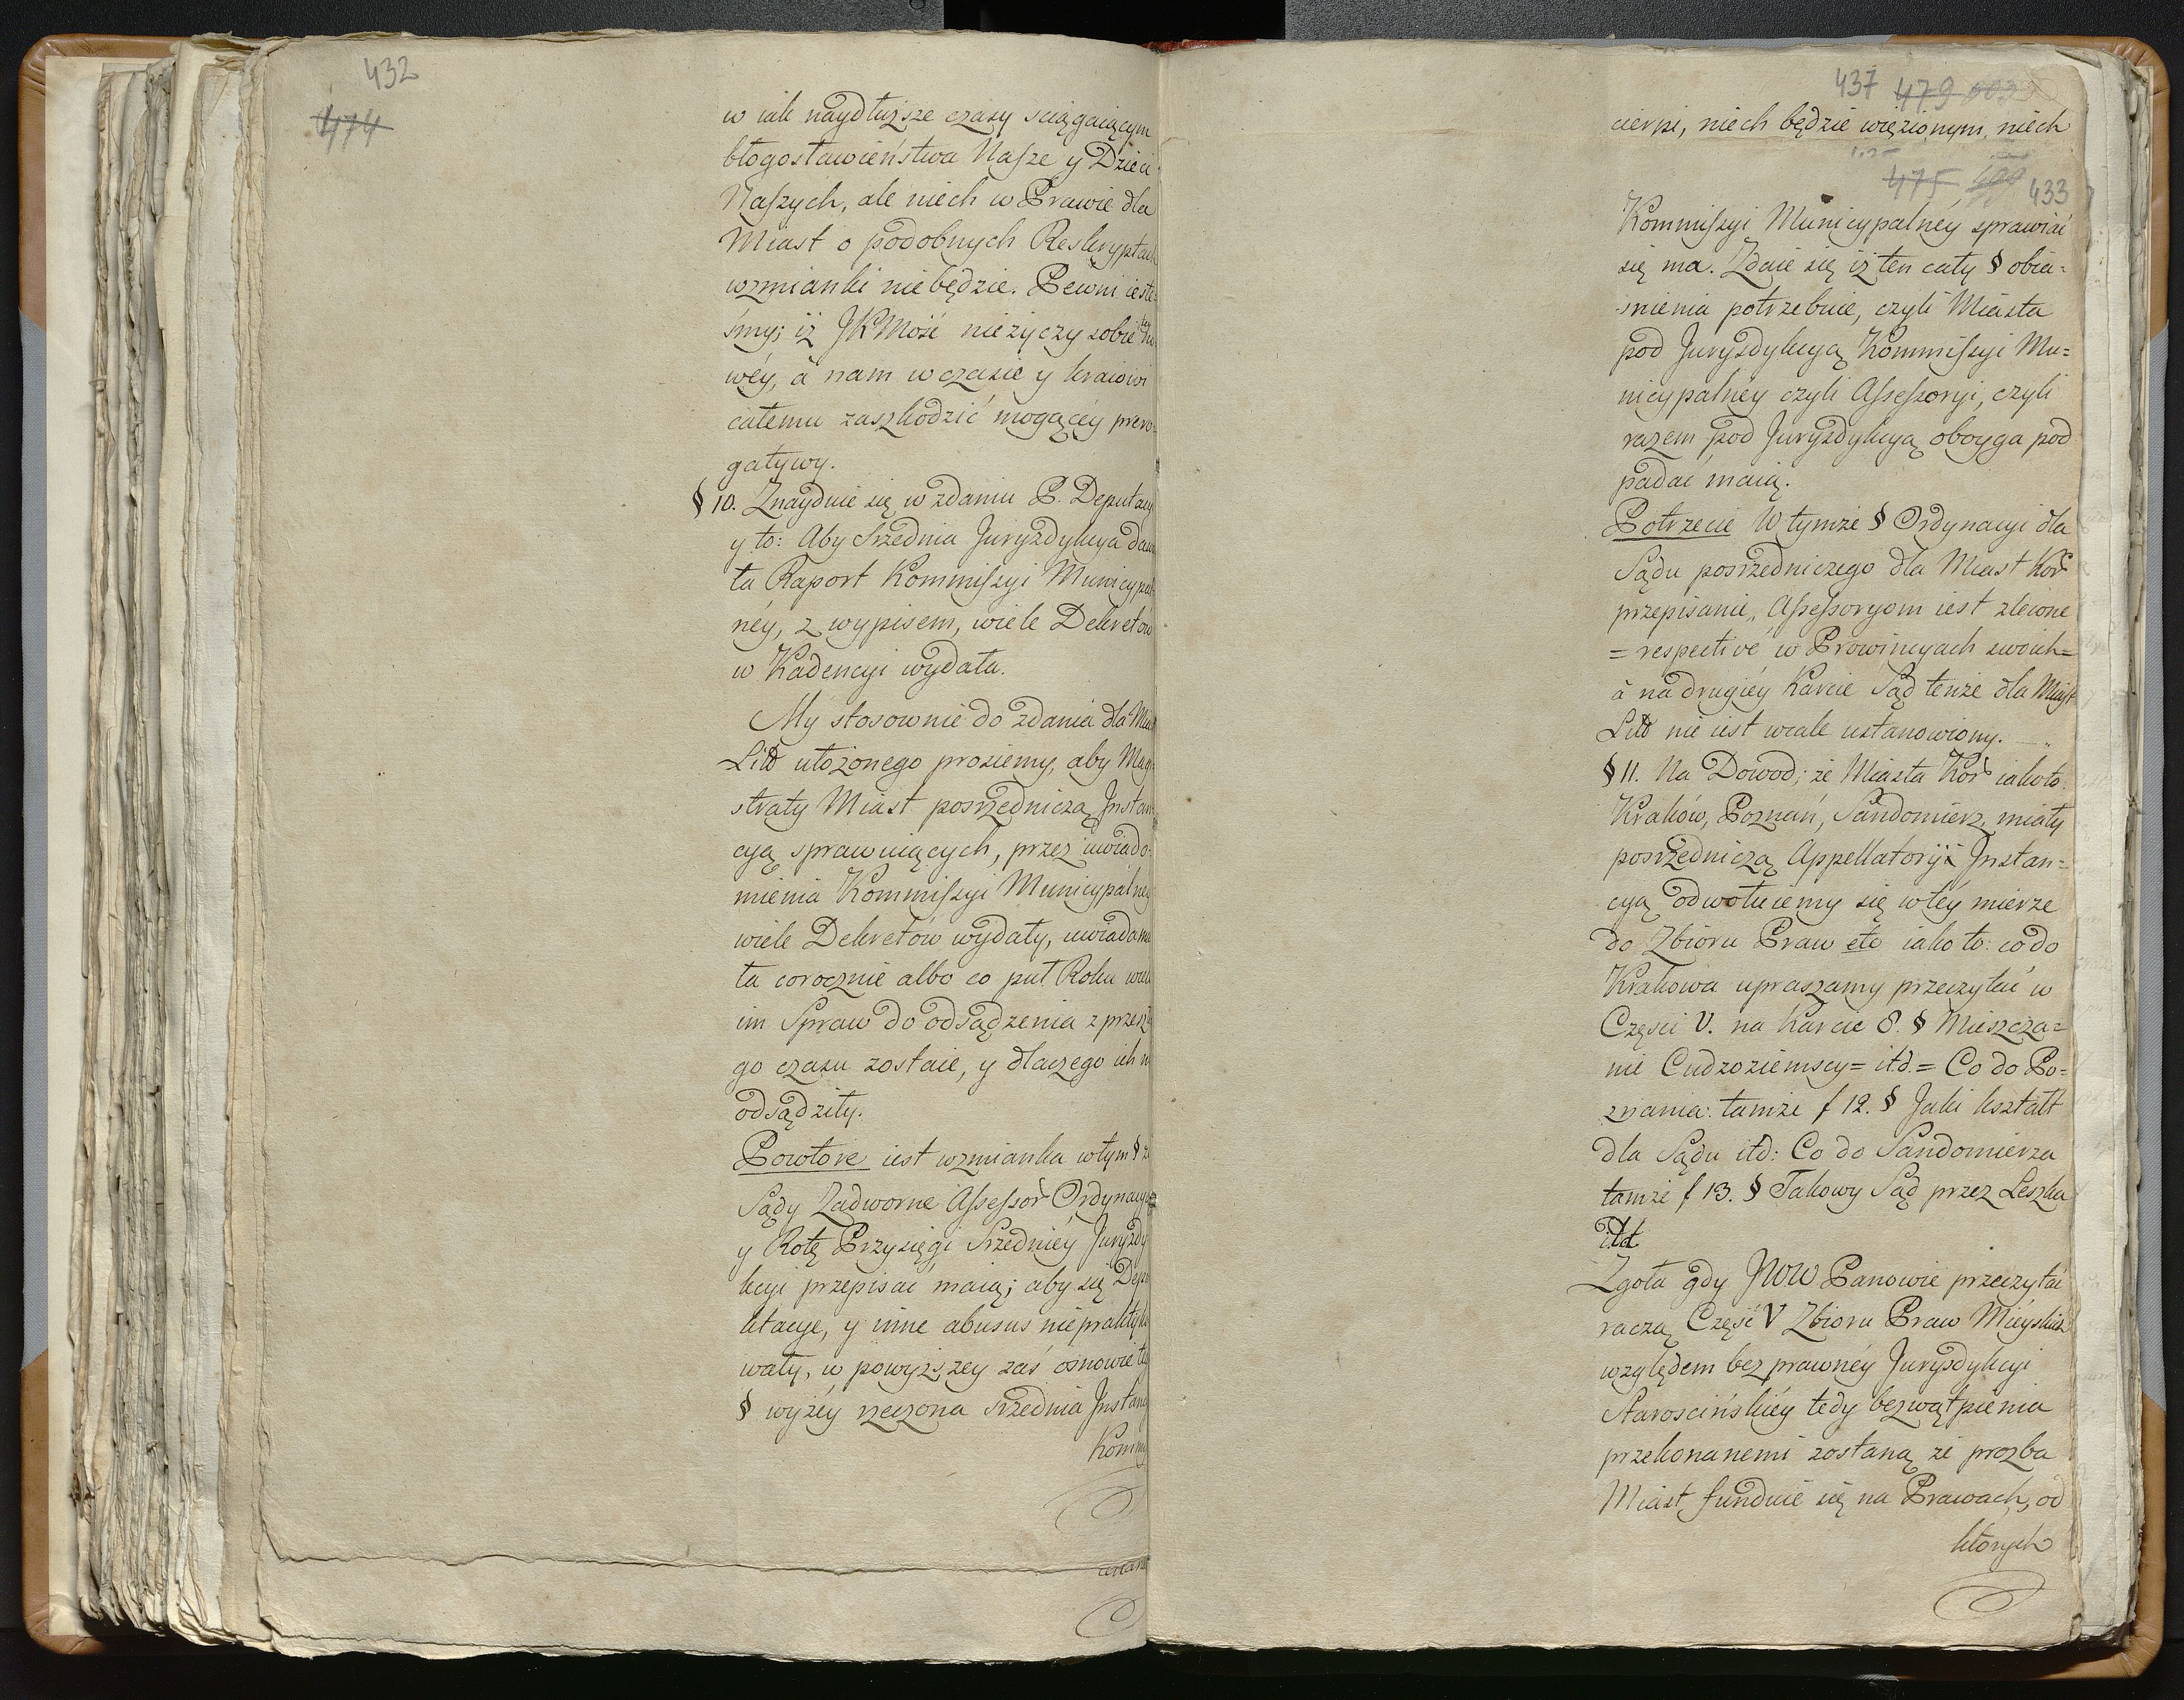 432
474
w iak naydłuższe czasy sciągaiącym
błogosławieństwa Nasze y Dzieci
Naszych, ale niech w Prawie dla
Miast o podobnych Reskryptach
wzmianki niebędzie. Pewni ieste=
śmy; iż JKMość nieżyczy sobie
wéy, á nam w czasie y kraiowi
całemu zaszkodzić mogącéy prero=
gatywy.
§ 10. Znayduie się w zdaniu P. Deputacyi
y to: Aby Srzednia Juryzdykcya dawa
ła Raport Kommissyi Municypal
néy, z wypisem, wiele Dekretów
w Kadencyi wydała.
My stosownie do zdania dla Miast
Litt ułożonego prosiemy, aby Magi
straty Miast posrzedniczą Jnstan
cyą sprawuiących, przez uwiado=
mienia Kommissyi Municypalnéy
wiele Dekretów wydały, uwiadamia
ła corocznie albo co puł Roku wiele
im Spraw do odsądzenia z przeszłe
go czasu zostaie, y dlaczego ich nie
odsądziły.
Powtóre iest wzmianka w tym § że
Sądy Zadworne Assessor Ordynacyą
y Rotę Przysięgi Srzedniéy Juryzdy
kcyi przepisać maią; aby się Depu
ktacye, y inne abusus niepraktyko
wały, w powyższey zaś osnowie tego
§ wyżéy rzeczona Srzednia Jnstancya
Kommi
437 479
cierpi, niech będzie więzionym, niech
475 433
Kommissyi Municypalnéy sprawiać
się ma. Zdaie się iż ten cały § obia=
śnienia potrzebuie, czyli Miasta
pod Juryzdykcyą Kommissyi Mu=
nicypalnéy czyli Assessoryi, czyli
razem pod Juryzdykcyą oboyga pod
padać maią.
Potrzecie W tymże § Ordynacyi dla
Sądu posrzedniczego dla Miast Kor
przepisanie „ Assessoryom iest zlecone
= respectivé w Prowincyach swoich=
á na drugiéy Karcie Sąd tenże dla Miast
Litt nie iest wcale ustanowiony.
§ 11. Na Dowod; że Miasta Kor iako to:
Kraków, Poznań, Sandomierz, miały
posrzedniczą Appellatoryi Jnstan=
cyą odwołuiemy się w téy mierze
do Zbioru Praw etc iako to: co do
Krakowa upraszamy przeczytać w
Części V. na Karcie 8. § Mieszcza=
nie Cudzoziemscy= itd.= Co do Po=
znania: tamże f 12. § Jaki kształt
dla Sądu itd: Co do Sandomierza
tamże f 13. § Takowy Sąd przez Leszka
itd
Zgoła gdy JWW Panowie przeczytać
raczą Część V Zbioru Praw Mieyskich
względem bez prawnéy Juryzdykcyi
Starościńskiéy tedy bezwątpienia
przekonanemi zostaną że prozba
Miast funduie się na Prawach, od
których